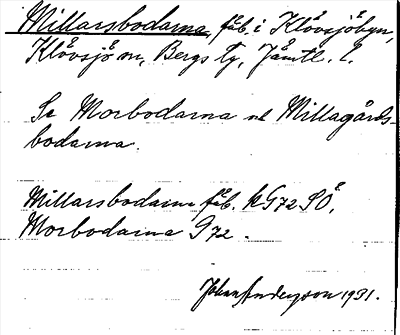 Millarsbodarna, fäb. i Klövsjöbyn,
Klövsjö sn, Bergs tg, Jämtl. l.
Se Morbodarna el Millagårds-
bodarna.
Millarsbodarna fäb. k G72 SÖ,
Morbodarna G72.
Johan Anderson 1931.